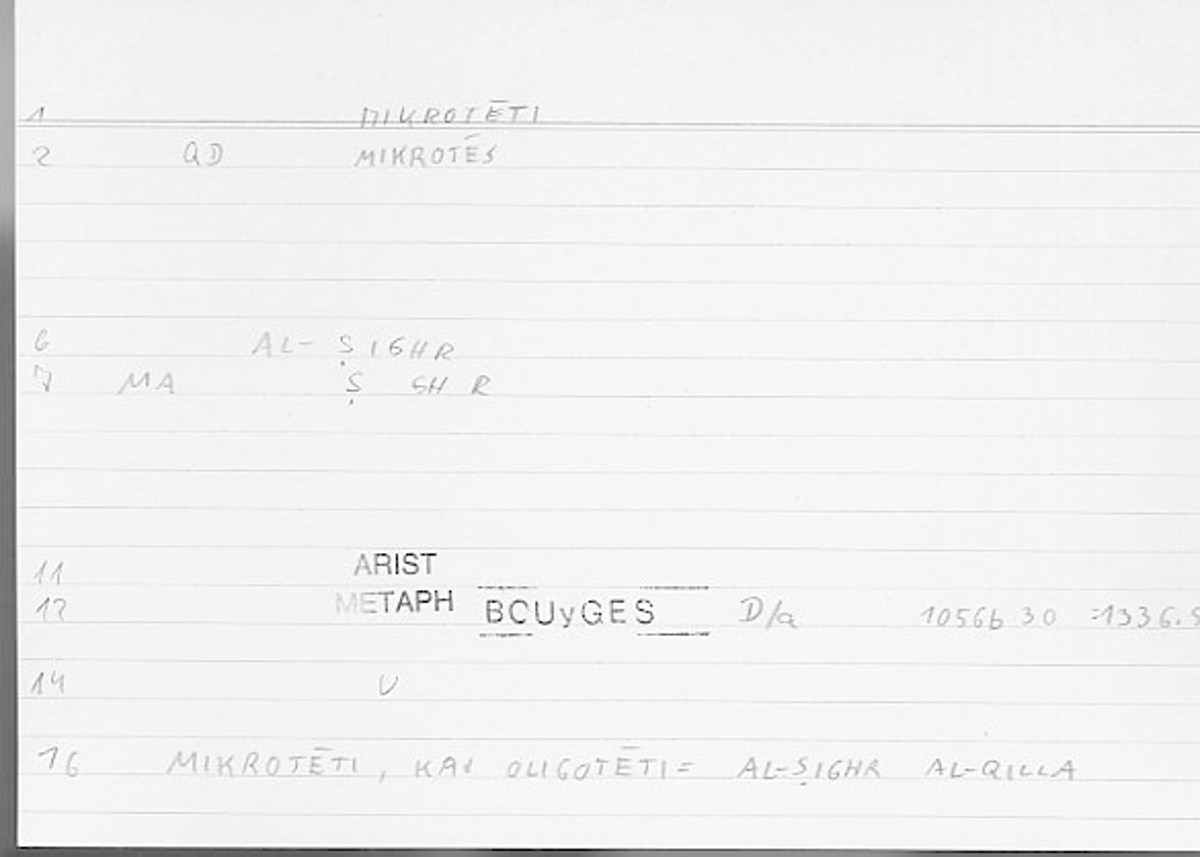 1 MIKROTĒTI
2 QD MIKROTĒS
6 AL-ṢIGHR
7 MA Ṣ GH R
11 ARIST
12 METAPH BOUyGES D/a 1056b 30 =1336.5
14 V
16 MIKROTĒTI, KAI OLIGOTĒTI = AL-ṢIGHR AL-QILLA